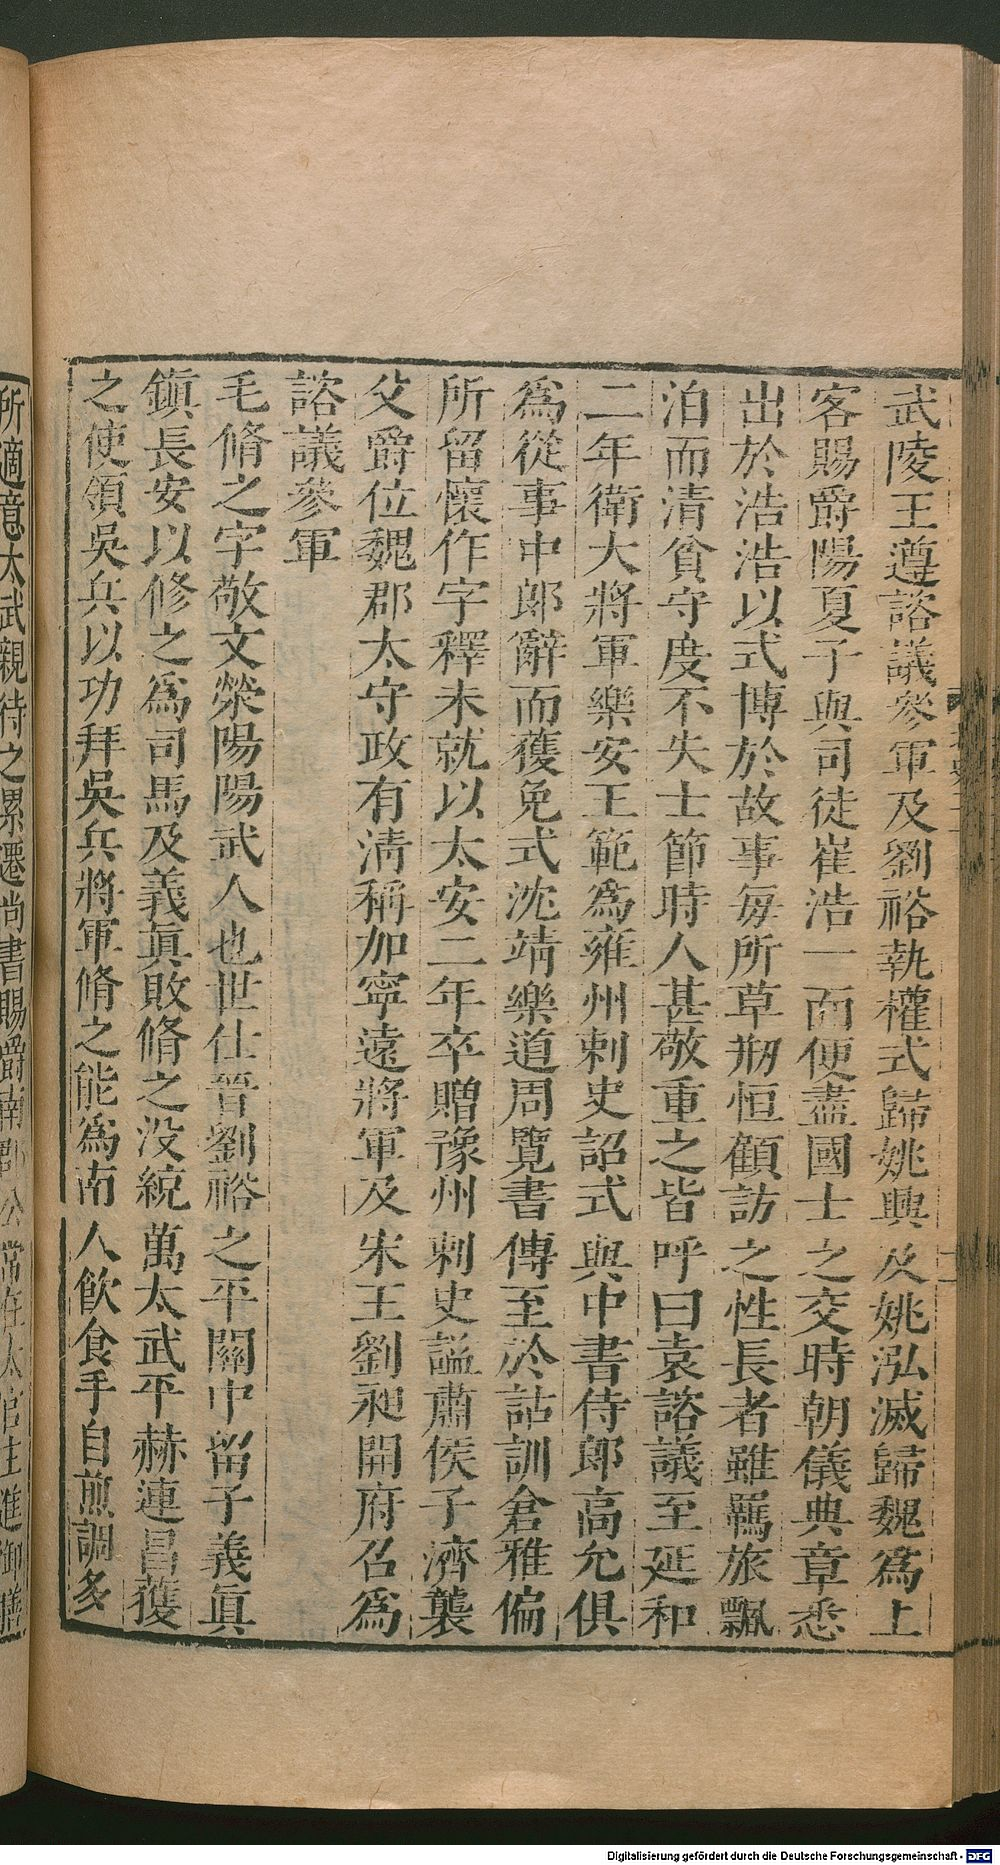 武陵王遵諮議參軍及劉裕執權式歸姚興及姚泓滅歸魏爲上
客賜爵陽夏子與司徒崔浩一面便盡國士之交時朝儀典章悉
出於浩浩以式博於故事每所草剏恒顧訪之性長者雖羈旅飄
泊而清貧守度不失士節時人甚敬重之皆呼曰袁諮議至延和
二年衛大將軍樂安王範爲雍州刺史詔式與中書侍郎高允俱
爲從事中郎辭而獲免式沈靖樂道周覽書傳至於詁訓倉雅偏
所留懷作字釋未就以太安二年卒贈豫州刺史謚肅侯子濟襲
父爵位魏郡太守政有清稱加寧遠將軍及宋王劉昶開府召爲
諮議參軍
毛脩之字敬文滎陽陽武人也世仕晉劉裕之平關中留子義眞
鎮長安以修之爲司馬及義眞敗脩之没統萬太武平赫連昌獲
之使領吳兵以功拜吳兵將軍脩之能爲南人飲食手自煎調多
所適意太武親待之累遷尚書賜爵南郡公常在太官主進御膳
Digitalisierung gefördert durch die Deutsche Forschungsgemeinschaft - DFG